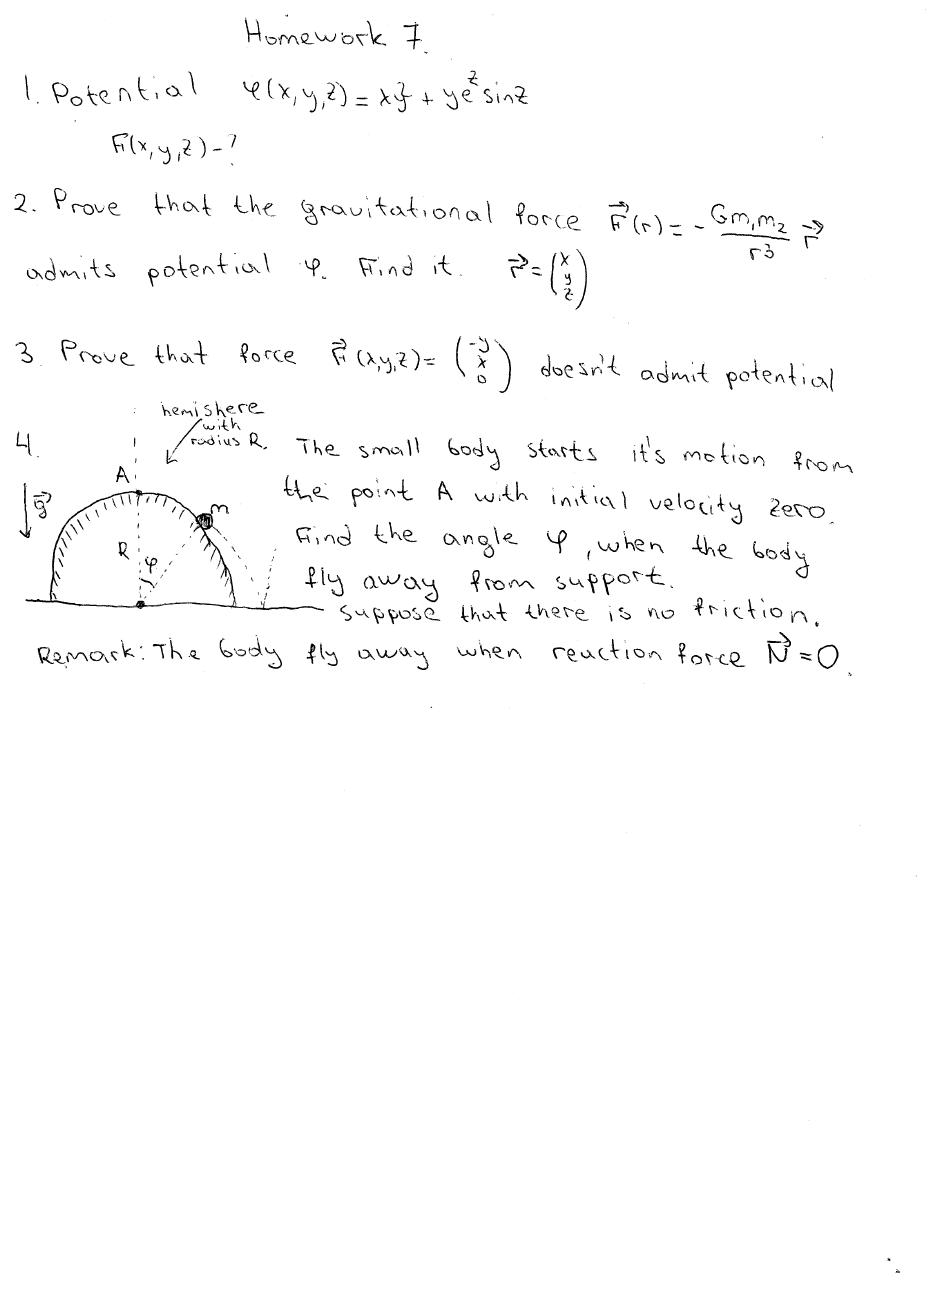 Homework 7.
1. Potential φ(x,y,z) = xz + ye^z sinz
F(x,y,z) - ?
2. Prove that the gravitational force F⃗(r) = - Gm₁m₂/r³ r⃗
admits potential φ. Find it. r⃗ = (x y z)
3. Prove that force F⃗(x,y,z) = (-y x 0) doesn't admit potential
hemishere
with
radius R.
4.
g⃗
A
m
R
φ
The small body starts it's motion from
the point A with initial velocity zero.
Find the angle φ, when the body
fly away from support.
Suppose that there is no friction.
Remark: The body fly away when reaction force N⃗ = 0.